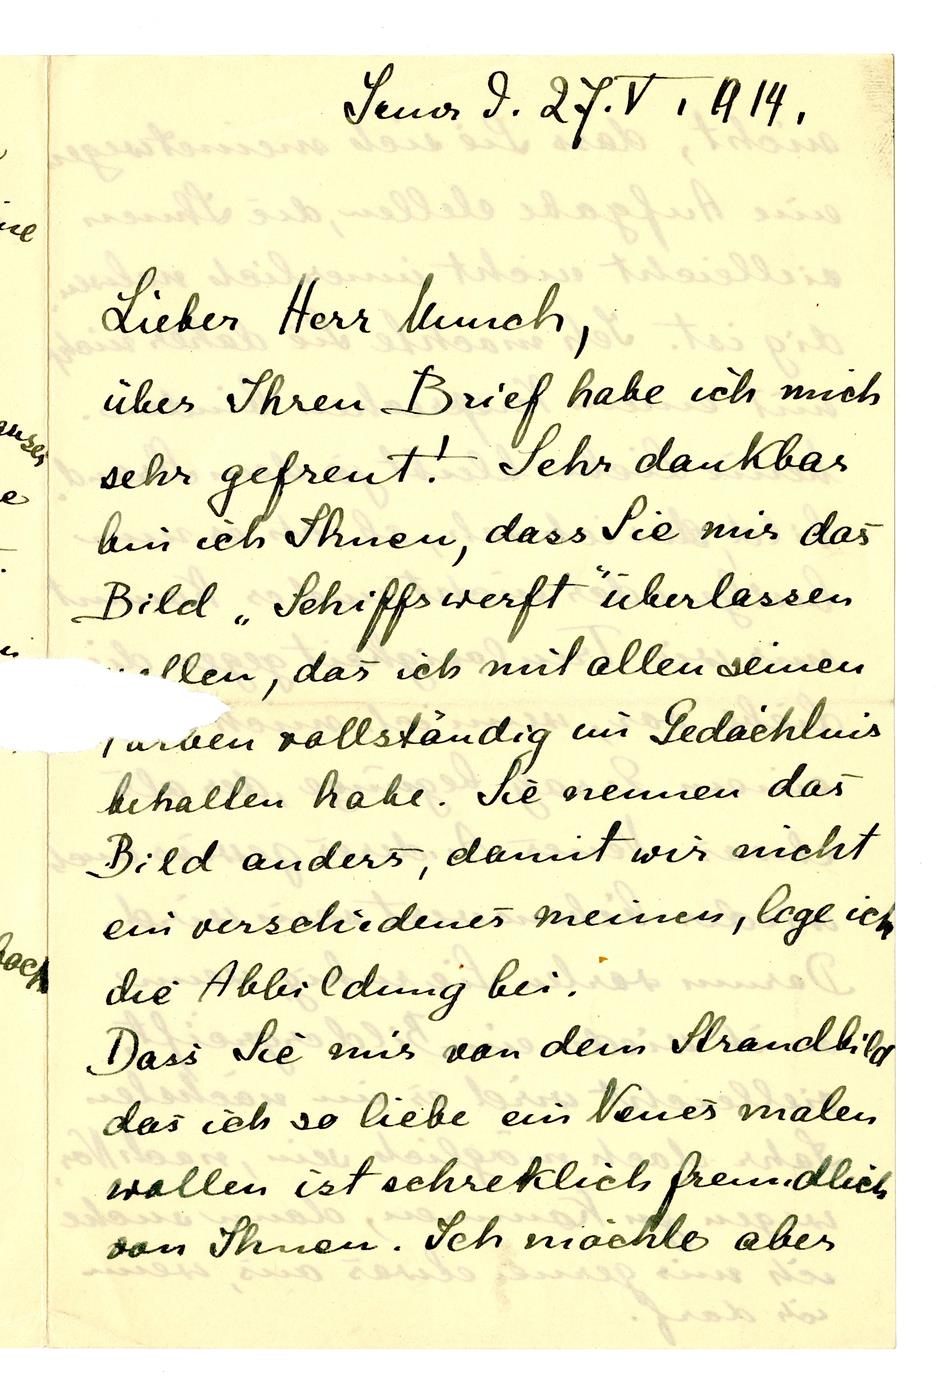 Jena d. 27. V. 1914.
Lieber Herr Munch,
über Ihren Brief habe ich mich
sehr gefreut! Sehr dankbar
bin ich Ihnen, dass Sie mir das
Bild „Schiffswerft“ überlassen
wollen, das ich mit allen seinen
Farben vollständig im Gedächtnis
behalten habe. Sie nennen das
Bild anders, damit wir nicht
ein verschiedenes meinen, lege ich
die Abbildung bei.
Dass Sie mir von dem Strandbild
das ich so liebe ein Neues malen
wollen ist schreklich freundlich
von Ihnen. Ich möchte aber